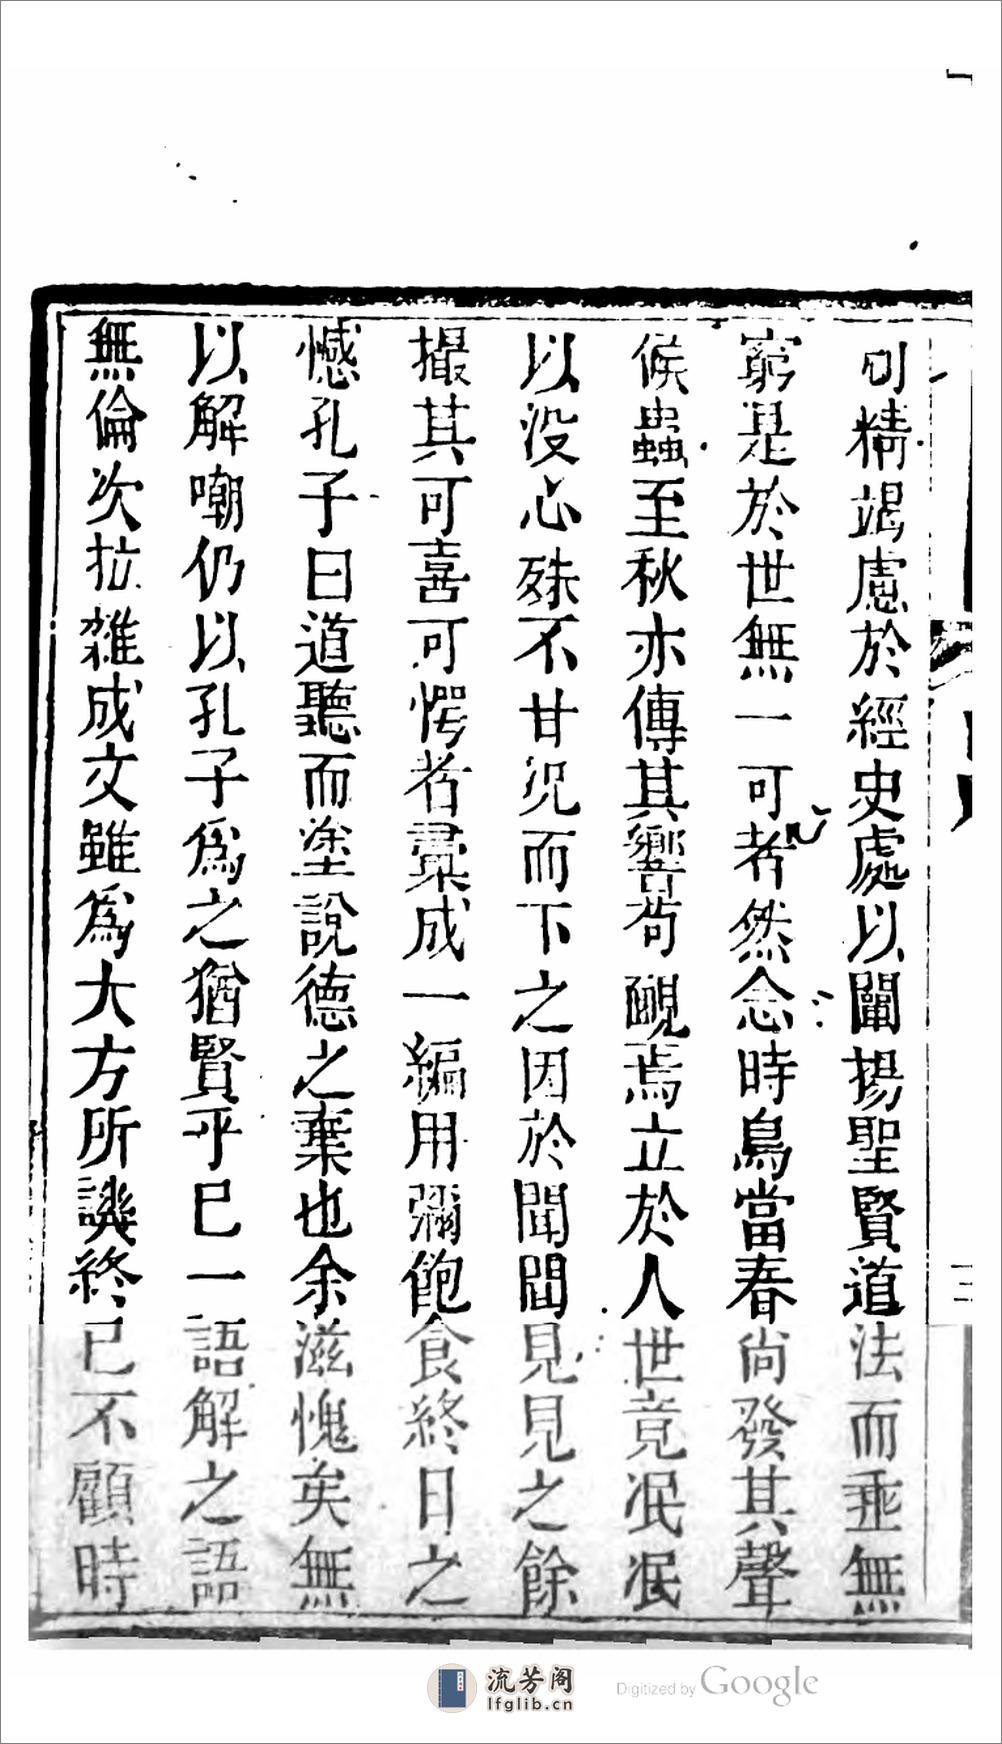 可精竭慮於經史處以闡揚聖賢道法而垂無
窮是於世無一可者然念時鳥當春尚發其聲
候蟲至秋亦傳其響苟靦焉立於人世竟泯泯
以没心殊不甘況而下之因於聞聞見見之餘
撮其可喜可愕者彚成一編用彌飽食終日之
憾孔子曰道聽而塗說德之棄也余滋愧矣無
以解嘲仍以孔子爲之猶賢乎已一語解之語
無倫次拉雜成文雖爲大方所譏終已不顧時
流芳阁
lfglib.cn
Digitized by Google